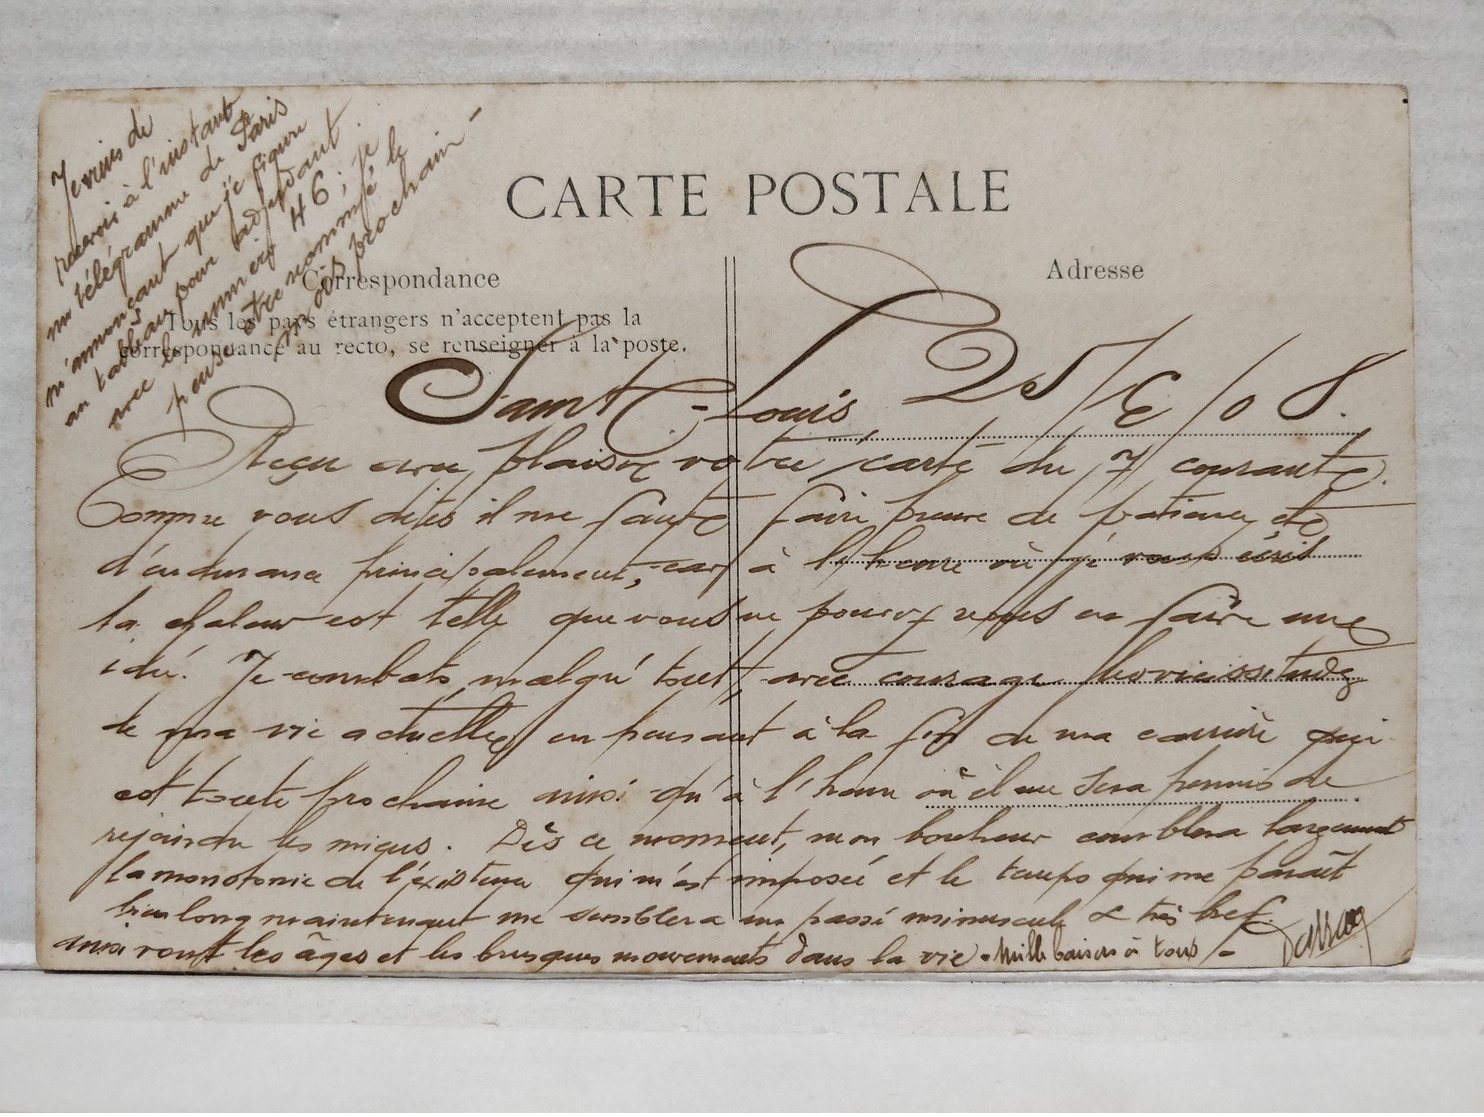 Je viens de
recevoir à l'instant
un télégramme de Paris
m'annonçant que je figure
au tableau pour adjudant
avec le numéro 46 ; je
pense être nommé le
mois prochain -
CARTE POSTALE
Correspondance
Adresse
Tous les pays étrangers n'acceptent pas la
correspondance au recto, se renseigner à la poste.
Saint-Louis 25/6/08.
Reçu avec plaisir votre carte du 7 courant.
Comme vous dites il me faut faire preuve de patience et
d'endurance principalement, car à l'heure où je vous écris
la chaleur est telle que vous ne pouvez vous en faire une
idée. Je combats malgré tout, avec courage les vicissitudes
de ma vie actuelle en pensant à la fin de ma carrière qui
est toute prochaine ainsi qu'à l'heure où il me sera permis de
rejoindre les miens. Dès ce moment, mon bonheur comblera largement
la monotonie de l'existence qui m'est imposée et le temps qui me paraît
bien long maintenant me semblera un passé minuscule & très bref.
ainsi vont les âges et les brusques mouvements dans la vie. Mille baisers à tous -